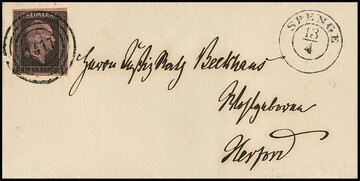 FREIMARKE
SPENGE
13
4
Herrn Justiz Rath Beckhaus
Wohlgeboren
Herford